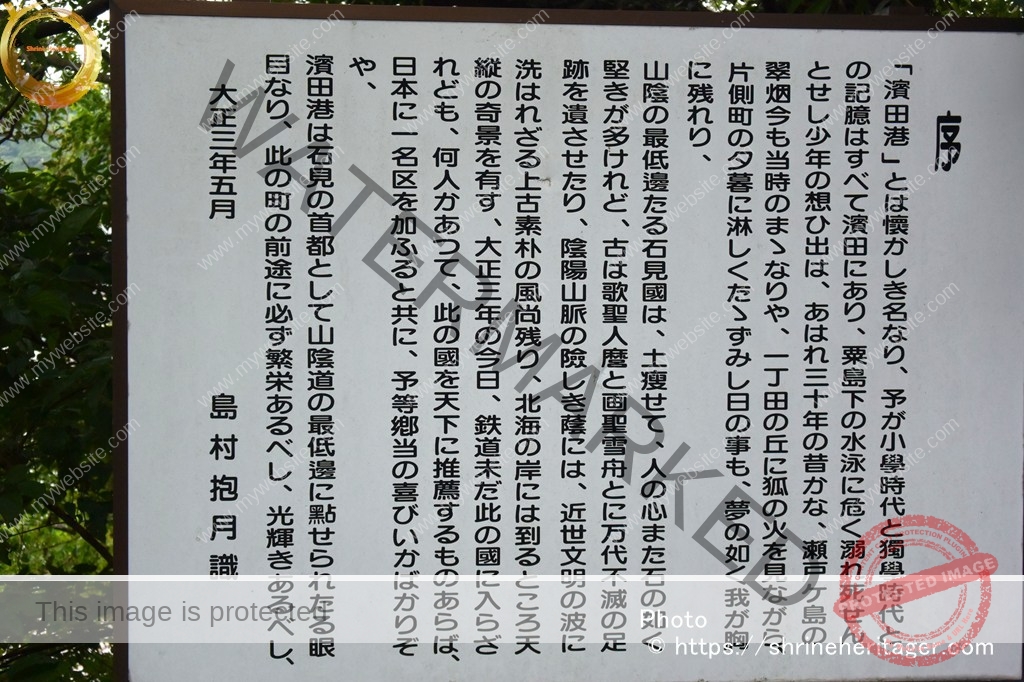 序
「濱田港」とは懐かしき名なり、予が小學時代と獨學時代と
の記臆はすべて濱田にあり、粟島下の水泳に危く溺れ死せん
とせし少年の想ひ出は、あはれ三十年の昔かな、瀬戸ケ島の
翠烟今も当時のまゝなりや、一丁田の丘に狐の火を見ながら
片側町の夕暮に淋しくたゝずみし日の事も、夢の如く我が胸
に残れり、
山陰の最低邊たる石見國は、土瘦せて、人の心また石の如く
堅きが多けれど、古は歌聖人麿と画聖雪舟とに万代不滅の足
跡を遺させたり、陰陽山脈の險しき蔭には、近世文明の波に
洗はれざる上古素朴の風尚残り、北海の岸には到るところ天
縦の奇景を有す、大正三年の今日、鉄道未だ此の國に入らざ
れども、何人かあつて、此の國を天下に推薦するものあらば、
日本に一名区を加ふると共に、予等鄕当の喜びいかばかりぞ
や、
濱田港は石見の首都として山陰道の最低邊に點せられたる眼
目なり、此の町の前途に必ず繁栄あるべし、光輝きあるべし、
大正三年五月
島村抱月識
WATERMARKED
This image is protected
Photo
© https://shrineheritager.com
Shrine Heritager
PROTECTED IMAGE
www.mywebsite.com